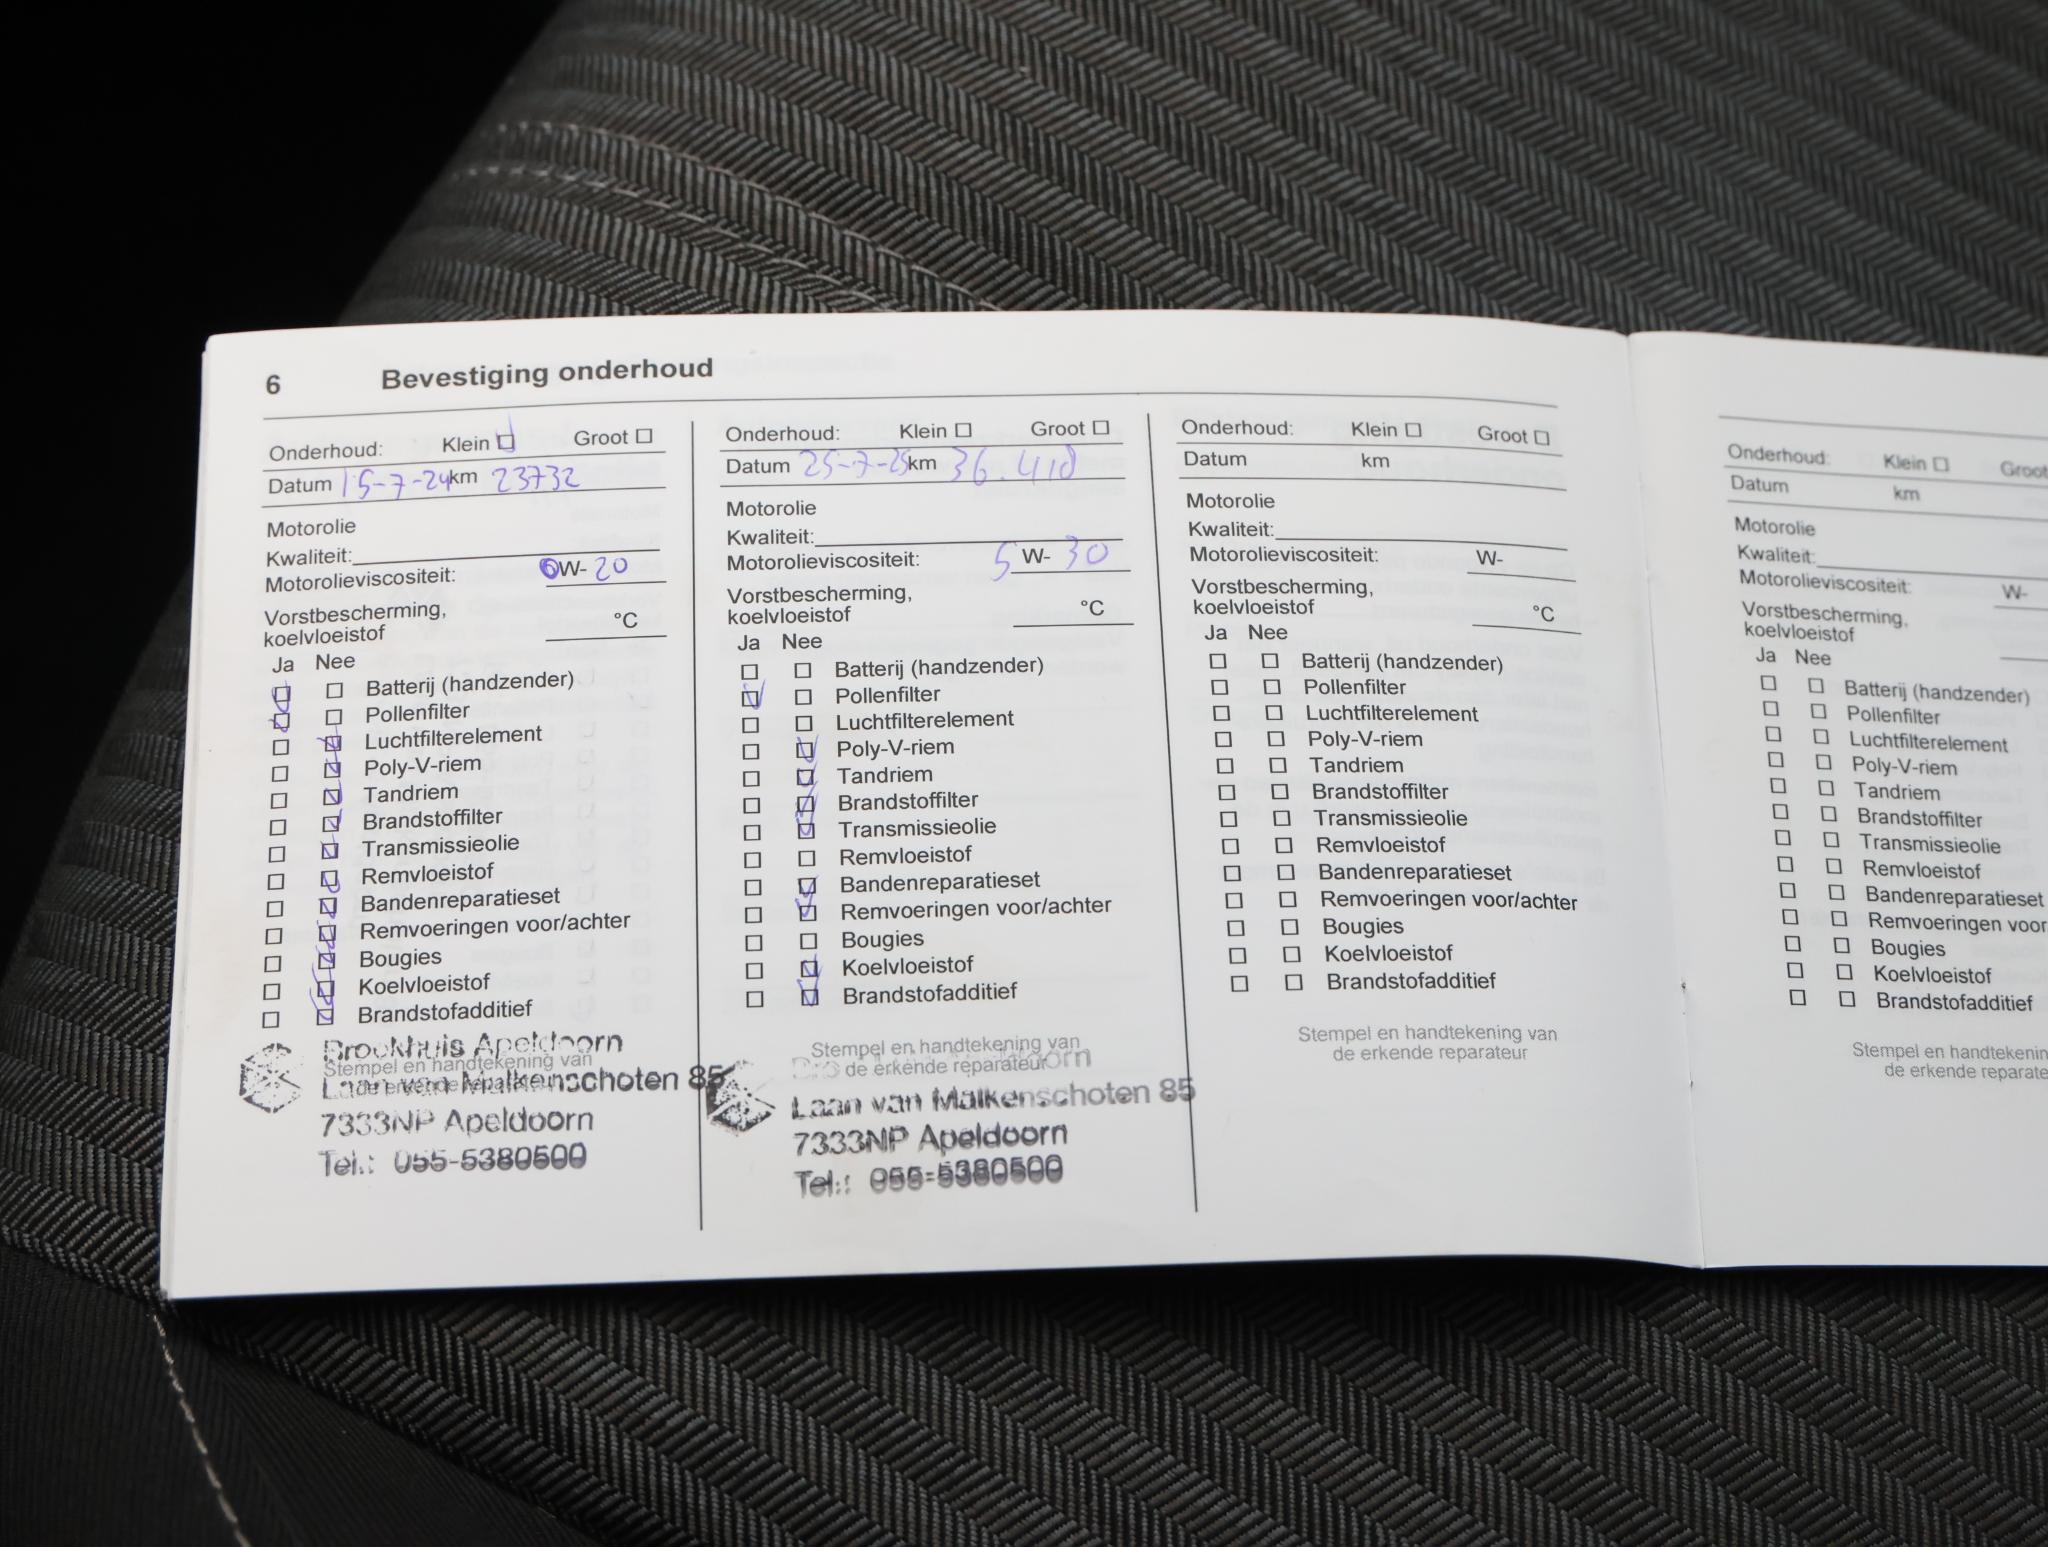 6 Bevestiging onderhoud
Onderhoud: Klein ☐ Groot ☐
Datum 15-7-24 km 23732
Motorolie
Kwaliteit:
Motorolieviscositeit: 0 W- 20
Vorstbescherming,
koelvloeistof °C
Ja Nee
Batterij (handzender)
Pollenfilter
Luchtfilterelement
Poly-V-riem
Tandriem
Brandstoffilter
Transmissieolie
Remvloeistof
Bandenreparatieset
Remvoeringen voor/achter
Bougies
Koelvloeistof
Brandstofadditief
Stempel en handtekening van
de erkende reparateur
Brookhuis Apeldoorn
Laan van Malkenschoten 85
7333NP Apeldoorn
Tel.: 055-5380500
Onderhoud: Klein ☐ Groot ☐
Datum 25-7-25 km 36.410
Motorolie
Kwaliteit:
Motorolieviscositeit: 5 W- 30
Vorstbescherming,
koelvloeistof °C
Ja Nee
Batterij (handzender)
Pollenfilter
Luchtfilterelement
Poly-V-riem
Tandriem
Brandstoffilter
Transmissieolie
Remvloeistof
Bandenreparatieset
Remvoeringen voor/achter
Bougies
Koelvloeistof
Brandstofadditief
Stempel en handtekening van
de erkende reparateur
Laan van Malkenschoten 85
7333NP Apeldoorn
Tel.: 055-5380500
Onderhoud: Klein ☐ Groot ☐
Datum km
Motorolie
Kwaliteit:
Motorolieviscositeit: W-
Vorstbescherming,
koelvloeistof °C
Ja Nee
Batterij (handzender)
Pollenfilter
Luchtfilterelement
Poly-V-riem
Tandriem
Brandstoffilter
Transmissieolie
Remvloeistof
Bandenreparatieset
Remvoeringen voor/achter
Bougies
Koelvloeistof
Brandstofadditief
Stempel en handtekening van
de erkende reparateur
Onderhoud: Klein ☐ Groot
Datum km
Motorolie
Kwaliteit:
Motorolieviscositeit: W-
Vorstbescherming,
koelvloeistof
Ja Nee
Batterij (handzender)
Pollenfilter
Luchtfilterelement
Poly-V-riem
Tandriem
Brandstoffilter
Transmissieolie
Remvloeistof
Bandenreparatieset
Remvoeringen voor
Bougies
Koelvloeistof
Brandstofadditief
Stempel en handtekenin
de erkende reparate